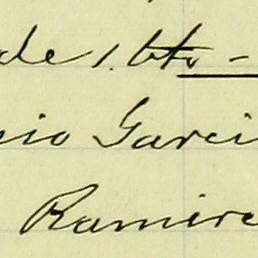 de 1. bto -
cio Garci
Ramire